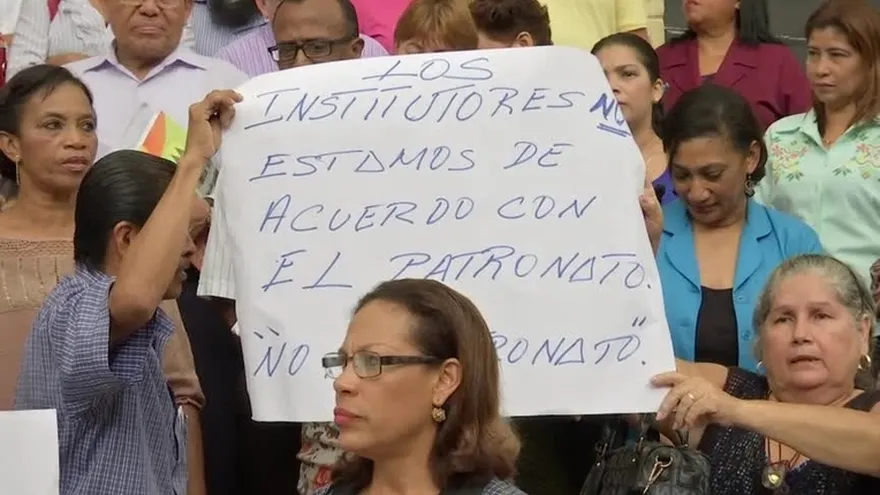 LOS
INSTITUTORES NO
ESTAMOS DE
ACUERDO CON
EL PATRONATO.
"NO